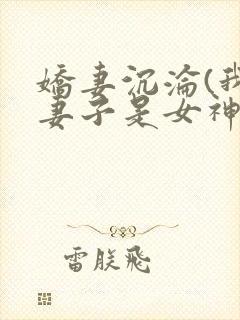 嬌妻沉淪(我
妻子是女神
雷朕飛